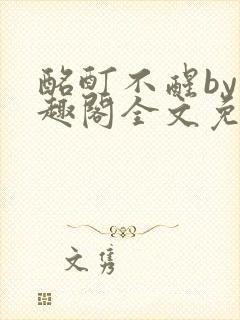 酩酊不醒by
趣阁全文免
文隽